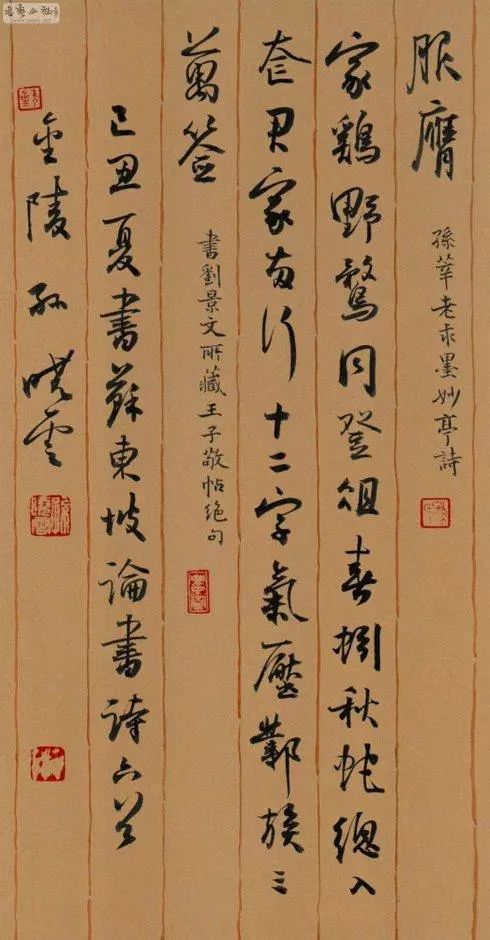 服膺 孫莘老求墨妙亭詩
家鷄野鶩同登俎春蚓秋蛇總入
奩君家兩行十二字氣壓鄴侯三
萬签 書劉景文所藏王子敬帖絕句
己丑夏書蘇東坡論書詩六首
金陵孫曉雲